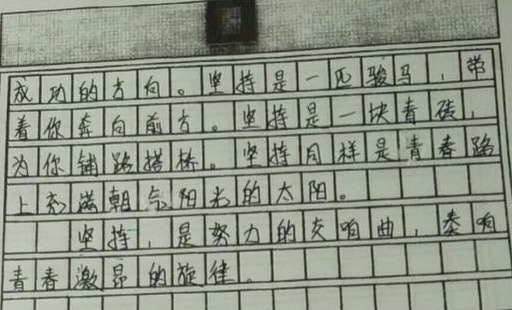 成功的方向。坚持是一匹骏马，带
着你奔向前方。坚持是一块青砖，
为你铺路搭桥。坚持同样是青春路
上充满朝气阳光的太阳。
坚持，是努力的交响曲，奏响
青春激昂的旋律。